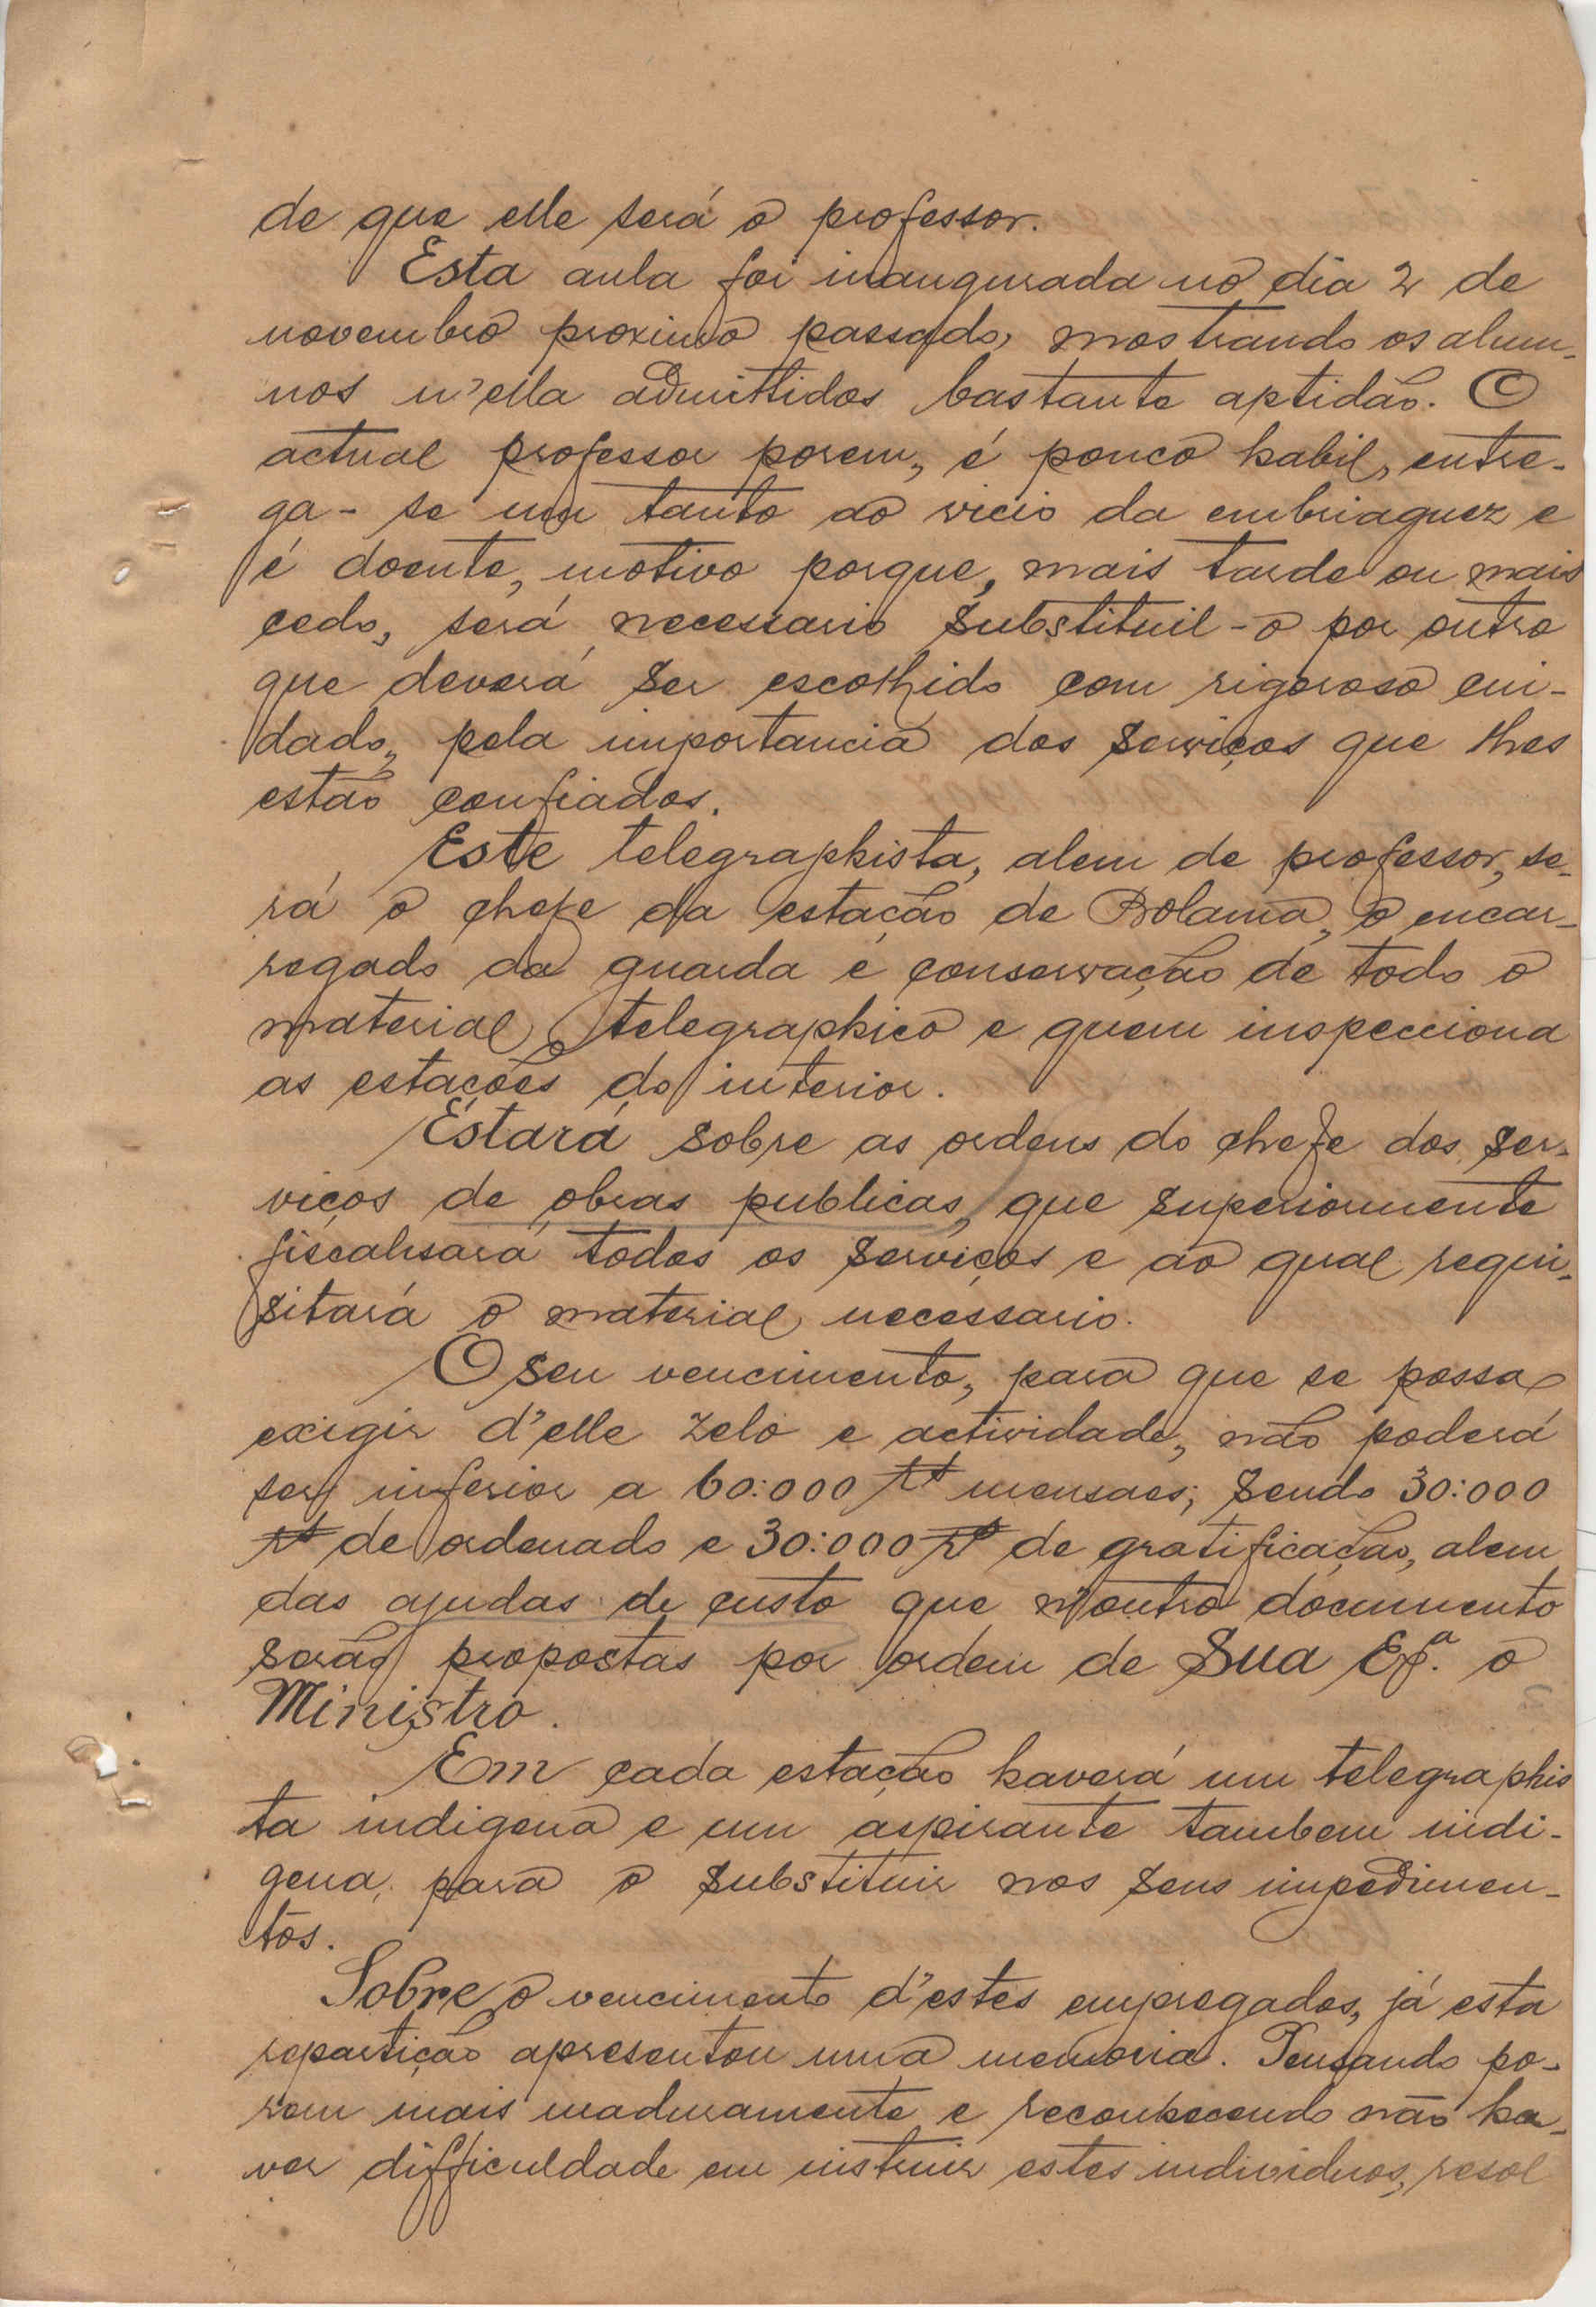 de que elle será o professor.
Esta aula foi inaugurada no dia 2 de
novembro proximo passado, mostrando os alum-
nos n'ella admittidos bastante aptidão. O
actual professor porem, é pouco habil, entre-
ga-se um tanto ao vicio da embriaguez e
é doente, motivo porque, mais tarde ou mais
cedo, será necessario substituil-o por outro
que deverá ser escolhido com rigoroso cui-
dado, pela importancia dos serviços que lhes
estão confiados.
Este telegraphista, alem de professor, se-
rá o chefe da estação de Bolama, o encar-
regado da guarda e conservação de todo o
material telegraphico e quem inspecciona
as estações do interior.
Estará sobre as ordens do chefe dos ser-
viços de obras publicas, que superiormente
fiscalisará todos os serviços e ao qual requi-
sitará o material necessario.
O seu vencimento, para que se possa
exigir d'elle zelo e actividade, não poderá
ser inferior a 60:000 rs mensaes; sendo 30:000
rs de ordenado e 30:000 rs de gratificação, alem
das ajudas de custo que n'outro documento
serão propostas por ordem de Sua Exª. o
Ministro.
Em cada estação haverá um telegraphis
ta indigena e um aspirante tambem indi-
gena, para o substituir nos seus impedimen-
tos.
Sobre o vencimento d'estes empregados, já esta
repartição apresentou uma memoria. Pensando po-
rem mais maduramente e reconhecendo não ha-
ver difficuldade em instruir estes individuos, resol